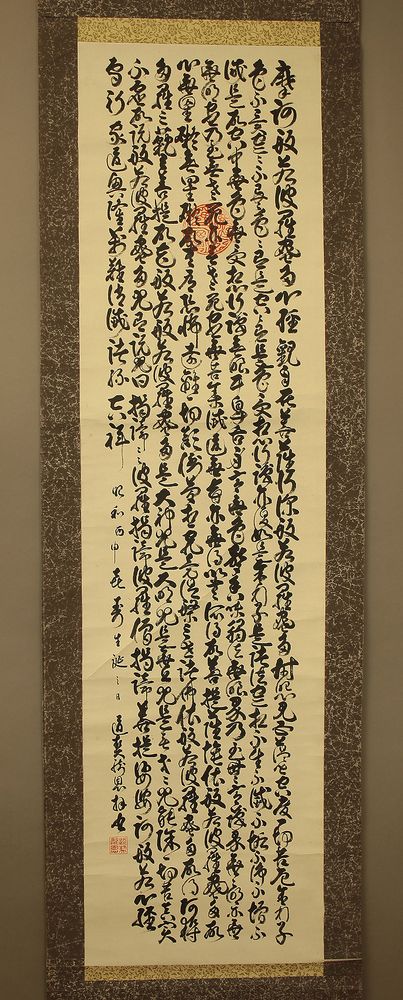 摩訶般若波羅蜜多心經 觀自在菩薩行深般若波羅蜜多時照見五蘊皆空度一切苦厄舍利子
色不異空空不異色色即是空空即是色受想行識亦復如是舍利子是諸法空相不生不滅不垢不淨不增不
減是故空中無色無受想行識無眼耳鼻舌身意無色聲香味觸法無眼界乃至無意識界無無明亦無
無明盡乃至無老死亦無老死盡無苦集滅道無智亦無得以無所得故菩提薩埵依般若波羅蜜多故
心無罣礙無罣礙故無有恐怖遠離一切顛倒夢想究竟涅槃三世諸佛依般若波羅蜜多故得阿耨
多羅三藐三菩提故知般若波羅蜜多是大神呪是大明呪是無上呪是無等々呪能除一切苦真實
不虛故說般若波羅蜜多呪即說呪曰 揭諦々々波羅揭諦波羅僧揭諦菩提娑婆訶般若心經
為祈家道興隆萬難消滅諸緣吉祥
昭和丙申 喜壽生誕之日